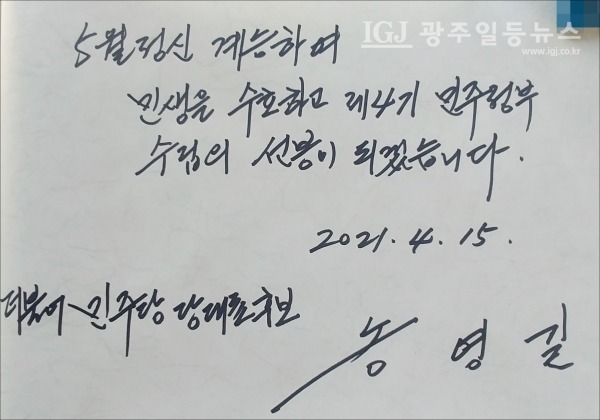 IGJ 광주일등뉴스
www.igj.co.kr
5월정신 계승하여
민생을 수호하고 제4기 민주정부
수립의 선봉이 되겠습니다.
2021. 4. 15.
더불어민주당 당대표후보
송영길